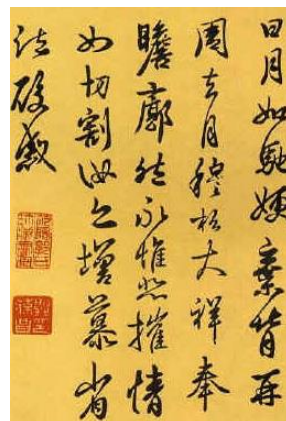 日月如馳嫂棄背再
周去月穆松大祥奉
瞻廓然永惟悲摧情
如切割汝亦增慕省
疏酸感